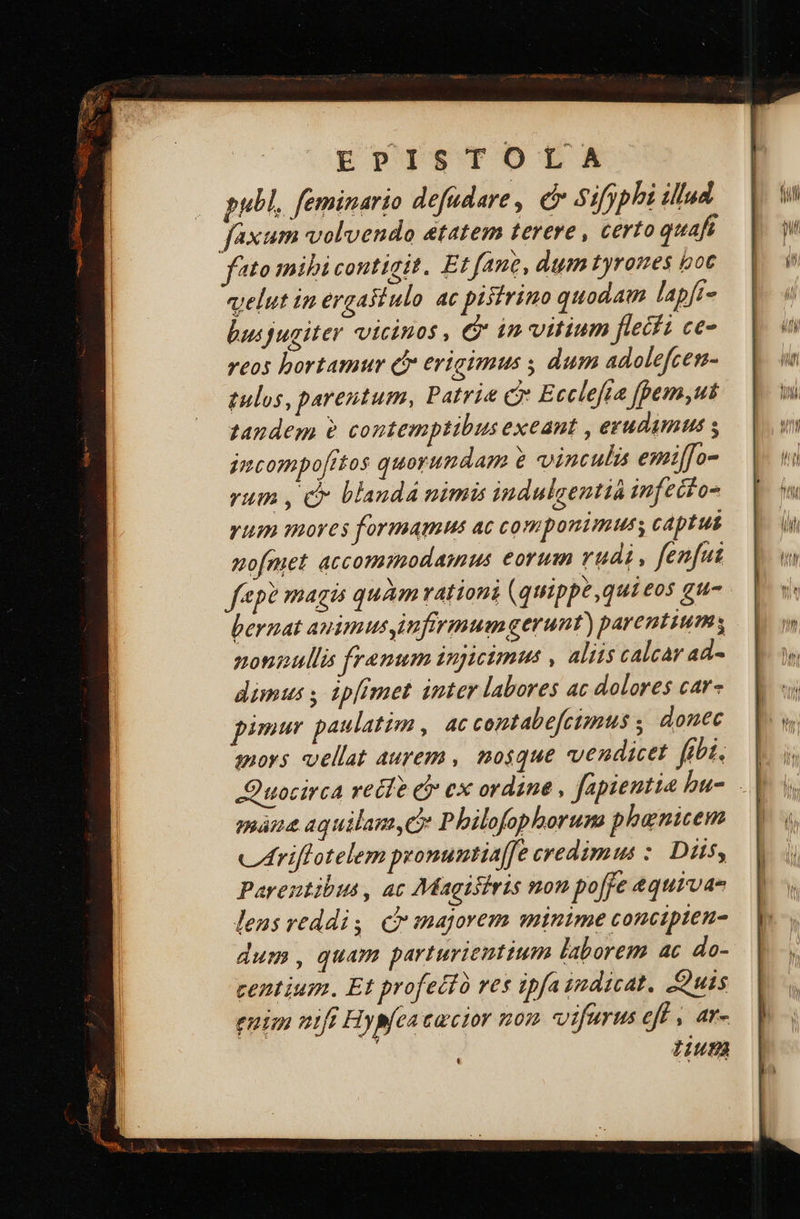 EPISTOLA
publ. ſeminario deſudare, & Siſyphi illud
ſaxum volvendo ætatem terere, certo quaſi
fato mihi contigit. Et ſanè, dum tyrones hoc
velut in ergaſtulo ac piſtrino quodam lapſi-
bus jugiter vicinos, & in vitium flecti ce-
reos hortamur & erigimus; dum adoleſcen-
tulos, parentum, Patriæ & Eccleſiæ ſpem, ut
tandem è contemptibus exeant, erudimus;
incompoſitos quorundam è vinculis emiſſo-
rum, & blandá nimis indulgentiâ infecto-
rum mores formamus ac componimus; captui
noſmet accommodamus eorum rudi, ſenſui
ſæpè magis quàm rationi (quippè, qui eos gu-
bernat animus, infirmum gerunt) parentium;
nonnullis frænum injicimus, aliis calcar ad-
dimus; ipſimet inter labores ac dolores car-
pimur paulatim, ac contabeſcimus; donec
mors vellat aurem, nosque vendicet ſibi.
Quocirca rectè & ex ordine, ſapientiæ hu-
mánæ aquilam, & Philoſophorum phœnicem
Ariſtotelem pronuntiaſſe credimus: Diis,
Parentibus, ac Magiſtris non poſſe æquiva-
lens reddi; & majorem minime concipien-
dum, quam parturientium laborem ac do-
centium. Et profectò res ipſa indicat. Quis
enim niſi Hypſea cæcior non viſurus eſt, ar-
tium